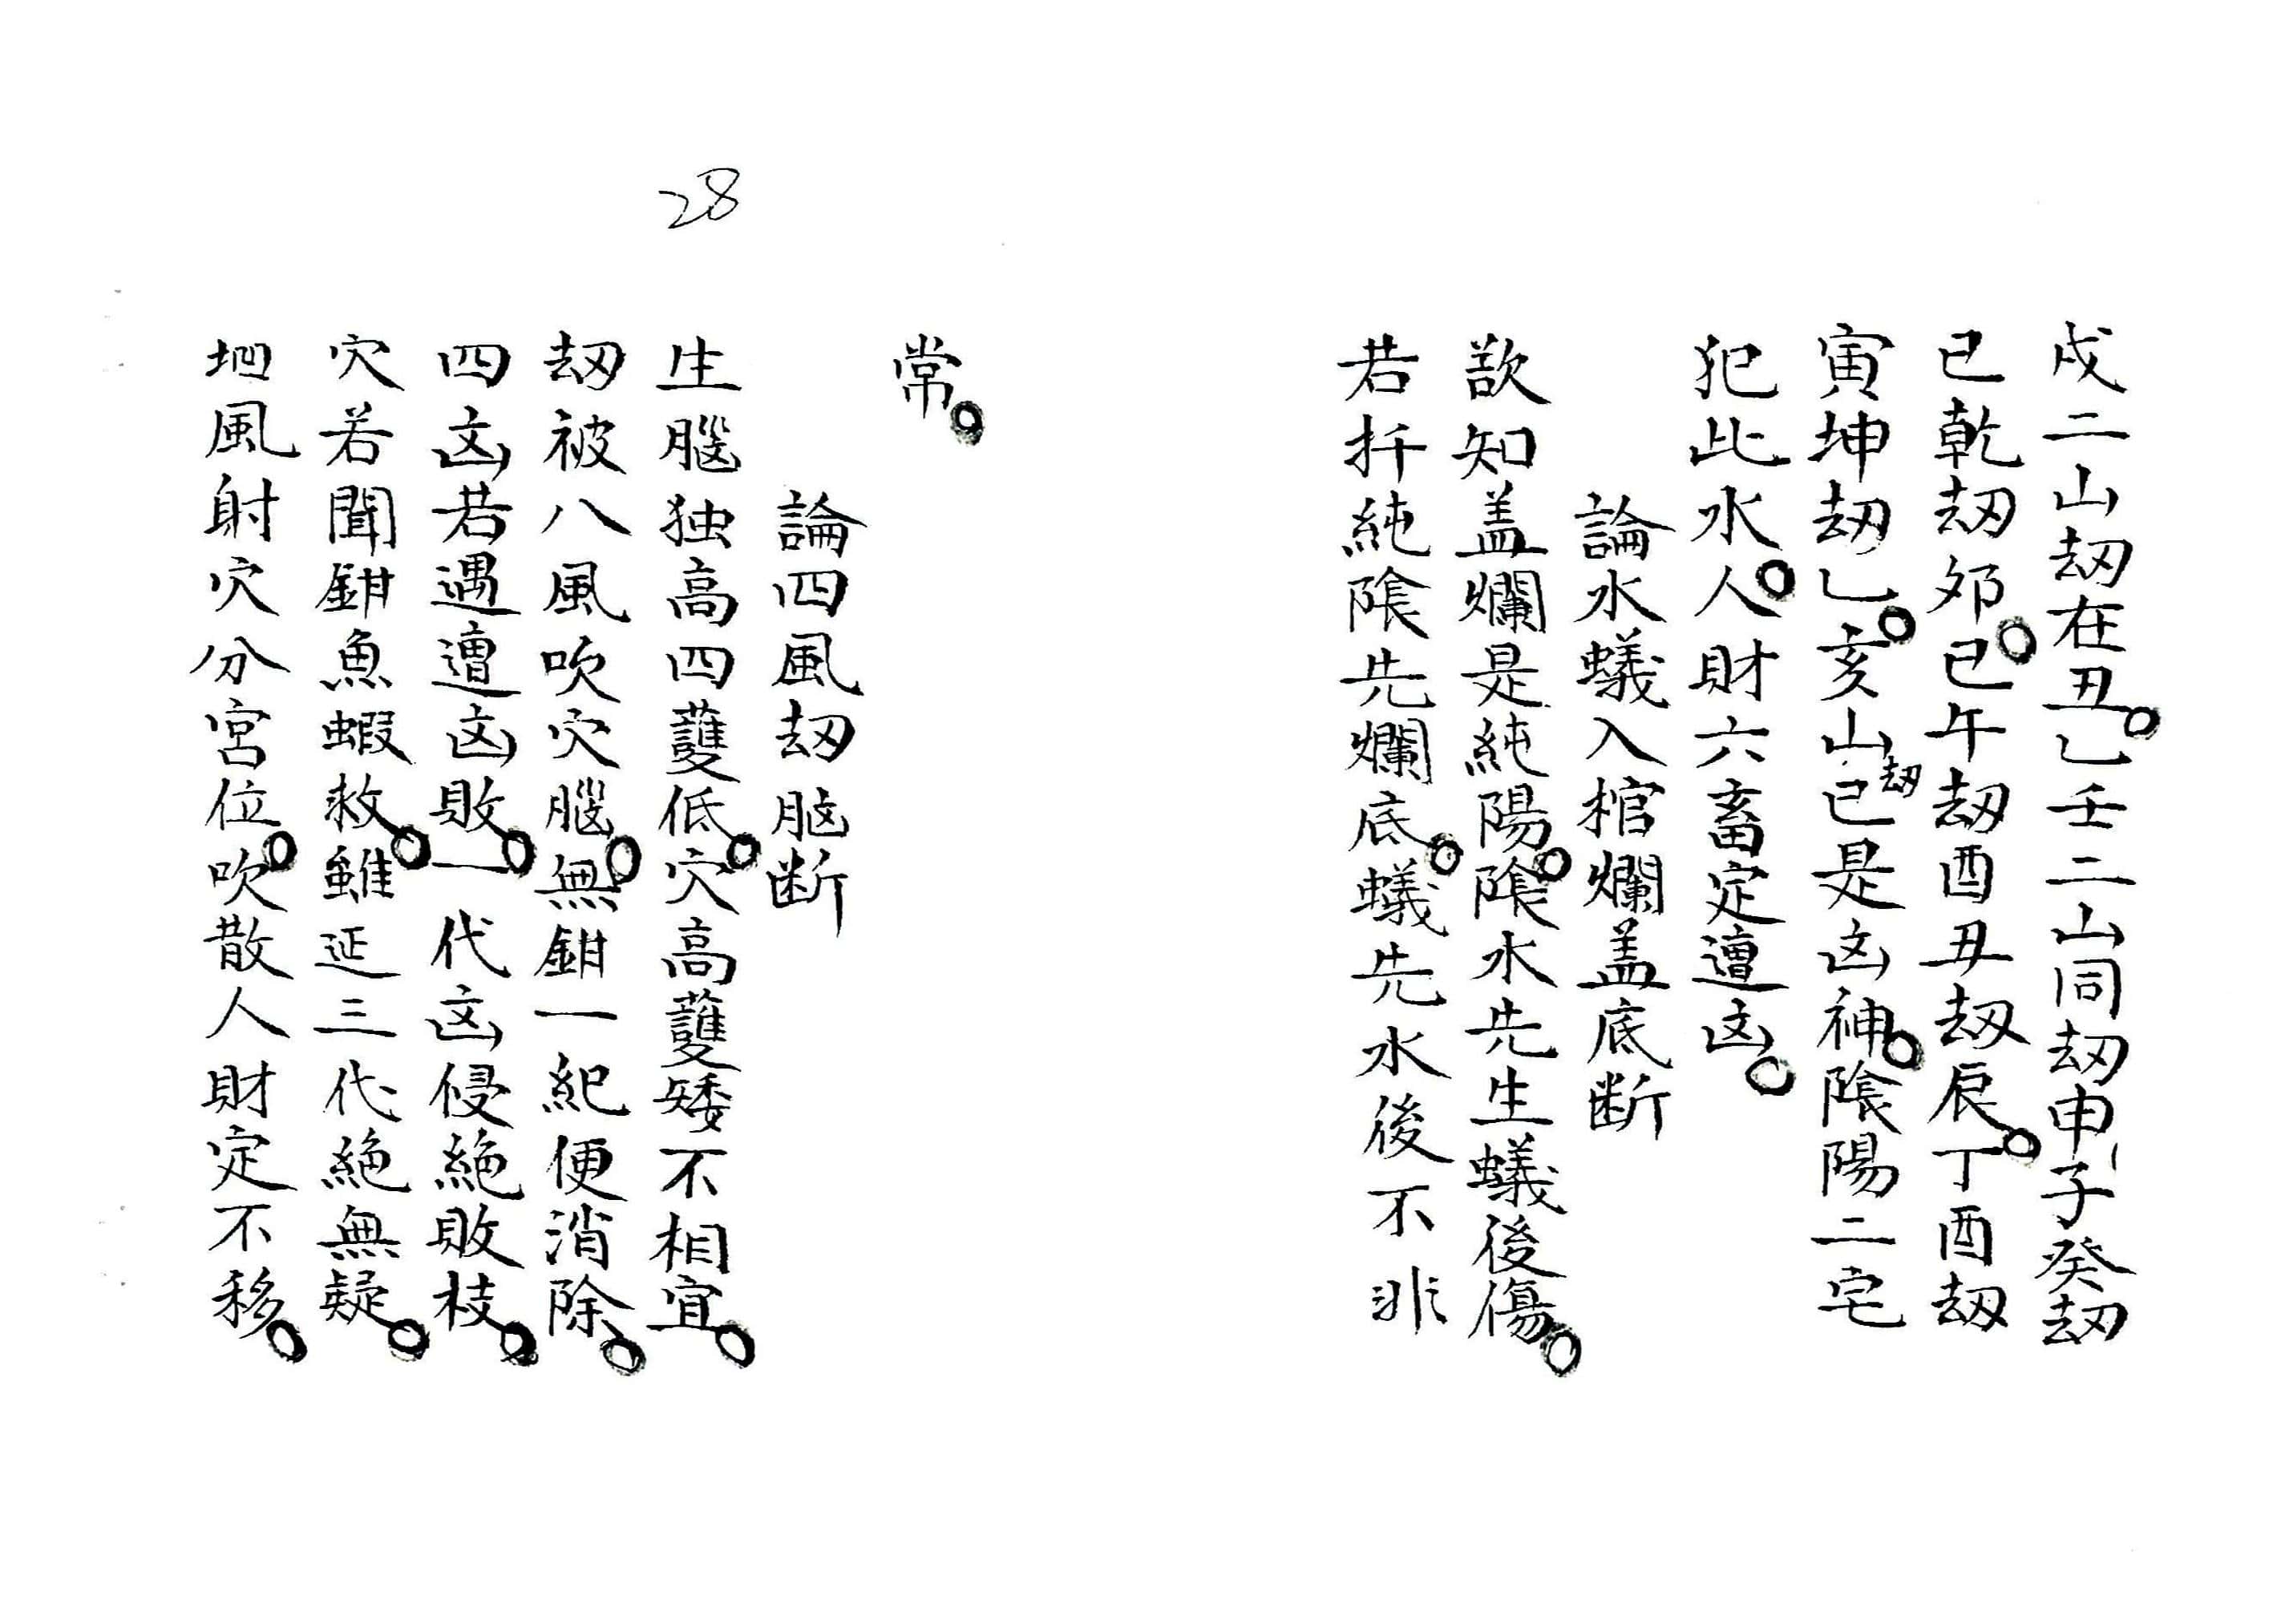 戌二山刼在丑。乙壬二山同刼申、子癸刼
已乾刼夘。已午刼酉丑刼辰。丁酉刼
寅坤刼乙。亥山刼已是凶神。隂陽二宅
犯此水。人財六畜定遭凶。
論水蟻入棺爛盖底断
欲知盖爛是純陽。隂水先生蟻後傷。
若扦純隂先爛底。蟻先水後不非
常。
28
論四風刼脳断
生腦独高四䕶低。穴高䕶矮不相宜。
刼被八風吹穴腦。無鉗一紀便消除。
四凶若遇遭凶敗。一代凶侵絶敗枝。
穴若聞鉗魚蝦救。雖延三代絶無疑。
坳風射穴分宮位。吹散人財定不移。